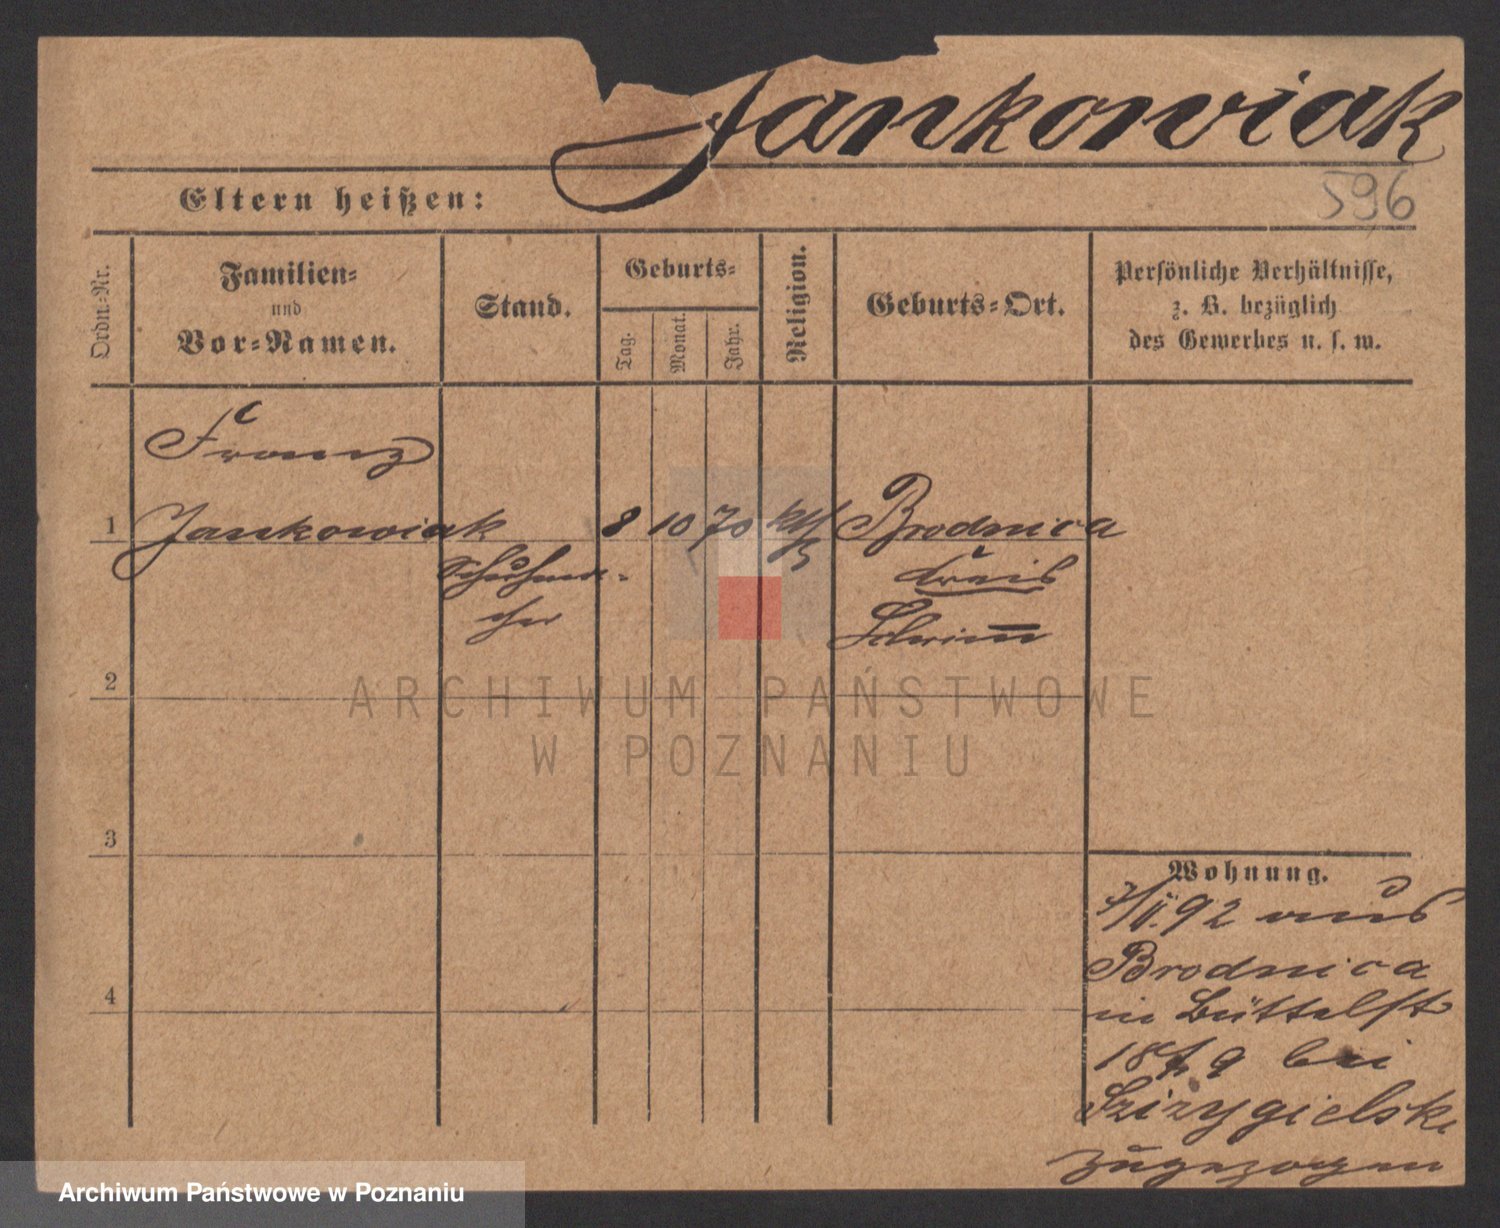 Jankowiak
Eltern heißen:
596
Ordn.-Nr.
Familien-
und
Vor-Namen.
Stand.
Geburts-
Tag.
Monat.
Jahr.
Religion.
Geburts-Ort.
Persönliche Verhältnisse,
z. B. bezüglich
des Gewerbes u. s. w.
Franz
1 Jankowiak 8 10 70 kth Brodnica
Schuhma-
cher
Kreis
Schrimm
2
ARCHIWUM PAŃSTWOWE
W POZNANIU
3
4
Wohnung.
7/II.92 aus
Brodnica
in Büttelst
18 9 bei
zugezogen
Archiwum Państwowe w Poznaniu